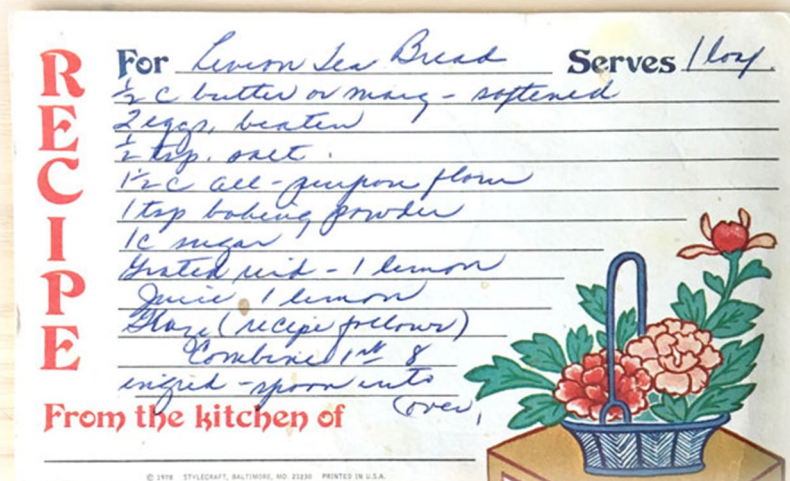 RECIPE
For Lemon Tea Bread Serves 1 loaf
½ c butter or marg - softened
2 eggs, beaten
½ tsp. salt.
1½ c all-purpose flour
1 tsp baking powder
1c sugar
Grated rind - 1 lemon
Juice 1 lemon
Glaze (recipe follows)
Combine 1st 8
ingred - spoon into
(over)
From the kitchen of
© 1978 STYLECRAFT, BALTIMORE, MD 21230 PRINTED IN U.S.A.